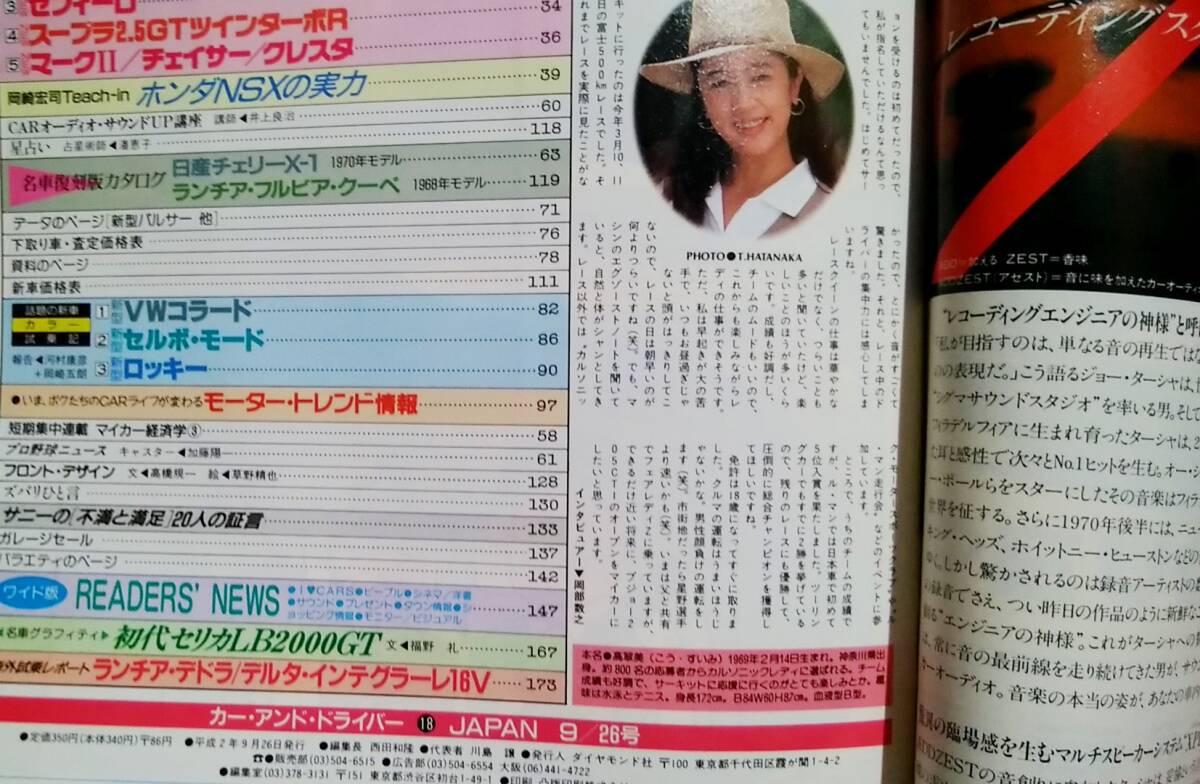 ③セフィーロ 34
④スープラ2.5GTツインターボR 36
⑤マークⅡ/チェイサー/クレスタ
岡崎宏司Teach-in ホンダNSXの実力 39
CARオーディオ・サウンドUP講座 講師◀井上良治 60
星占い 占星術師◀潘恵子 118
名車復刻版カタログ
日産チェリーX-1 1970年モデル 63
ランチア・フルビア・クーペ 1968年モデル 119
データのページ[新型パルサー 他] 71
下取り車・査定価格表 76
資料のページ 78
新車価格表 111
話題の新車
カラー
試乗記
報告◀河村康彦
+岡崎五朗
1 新型 VWコラード 82
2 新型 セルボ・モード 86
3 新型 ロッキー 90
●いま、ボクたちのCARライフが変わる モーター・トレンド情報 97
短期集中連載 マイカー経済学③ 58
プロ野球ニュース キャスター◀加藤陽一 61
フロント・デザイン 文◀高橋規一 絵◀草野精也 128
ズバリひと言 130
サニーの[不満と満足]20人の証言 133
ガレージセール 137
バラエティのページ 142
ワイド版 READERS' NEWS 147
●I♥CARS●ピープル●シネマ/洋書
●サウンド●プレゼント●タウン情報●シ
ョッピング情報●モニター/ビジュアル
名車グラフィティ▶初代セリカLB2000GT 文◀福野 礼 167
海外試乗レポート ランチア・デドラ/デルタ・インテグラーレ16V 173
カー・アンド・ドライバー ⑱ JAPAN 9/26号
●定価350円(本体340円)〒86円 ●平成2年9月26日発行 ●編集長 西田和隆 ●代表者 川島 譲 ●発行人 ダイヤモンド社 〒100 東京都千代田区霞が関1-4-2
☎●販売部(03)504-6515 ●広告部(03)504-6554 大阪(06)441-4722
●編集室(03)378-3131 〒151 東京都渋谷区初台1-49-1
ョンを受けるのは初めてだったので、
私が指名していただけるなんて思っ
てもいませんでした。はじめてサー
キットに行ったのは今年3月10、11
日の富士500kmレースでした。そ
れまでレースを実際に見たことがな
PHOTO●T.HATANAKA
かったので、とにかく音がすごくて
驚きました。それと、レース中のド
ライバーの集中力には感心してしま
いますね。
レースクイーンの仕事は華やかな
だけでなく、つらいことも
多いと聞いていたけど、楽
しいことのほうが多いくら
いです。成績も好調だし、
チームのムードもいいので、
これからも楽しみながらレ
ディの仕事ができそうです。
ただ、私は早起きが大の苦
手で、いつもお昼過ぎじゃ
ないと頭がはっきりしてこ
ないので、レースの日は朝早いのが
何よりつらいですね(笑)。でも、マ
シンのエグゾーストノートを聞いて
いると、自然と体がシャンとしてき
ます。レース以外では“カルソニッ
ク・モータースポーツ
マン走行会”などのイベントに参
加しています。
ところで、うちのチームの成績で
すが、ル・マンでは日本車で初めて
5位入賞を果たしました。ツーリン
グカーでもすでに2勝を挙げている
ので、残りのレースにも優勝して、
圧倒的に総合チャンピオンを獲得し
てほしいですね。
免許は18歳になってすぐに取りま
した。クルマの運転はうまいほうじ
ゃないかな。男性顔負けの運転をし
ます(笑)。市街地だったら星野選手
より速いかも(笑)。いまは父と共有
でフェアレディZに乗っていますが、
できるだけ近い将来に、プジョー2
05GTIのオープンをマイカーに
したいと思っています。
インタビュアー▼岡部数之
本名●高翠美(こう・すいみ)1969年2月14日生まれ。神奈川県出
身。約800名の応募者からカルソニックレディに選ばれる。チーム
成績も好調で、サーキットに応援に行くのがとても楽しみとか。趣
味は水泳とテニス。身長172cm。B84W60H87cm。血液型B型。
レコーディングスタ
ADD=加える ZEST=香味
ADDZEST(アゼスト)=音に味を加えたカーオーディ
“レコーディングエンジニアの神様”と呼
「私が目指すのは、単なる音の再生ではな
のの表現だ。」こう語るジョー・ターシャは、
グマサウンドスタジオ”を率いる男。そして
フィラデルフィアに生まれ育ったターシャは、
た耳と感性で次々とNo.1ヒットを生む。オー・
ー・ポールらをスターにしたその音楽はフィラ
世界を征する。さらに1970年後半には、ニュー
キング・ヘッズ、ホイットニー・ヒューストンなどの
しかし驚かされるのは録音アーティストの
の録音でさえ、つい昨日の作品のように新鮮な
“エンジニアの神様”。これがターシャへの
は、常に音の最前線を走り続けてきた男が、サウ
カーオーディオ。音楽の本当の姿が、あなたの車
の臨場感を生むマルチスピーカーシステム